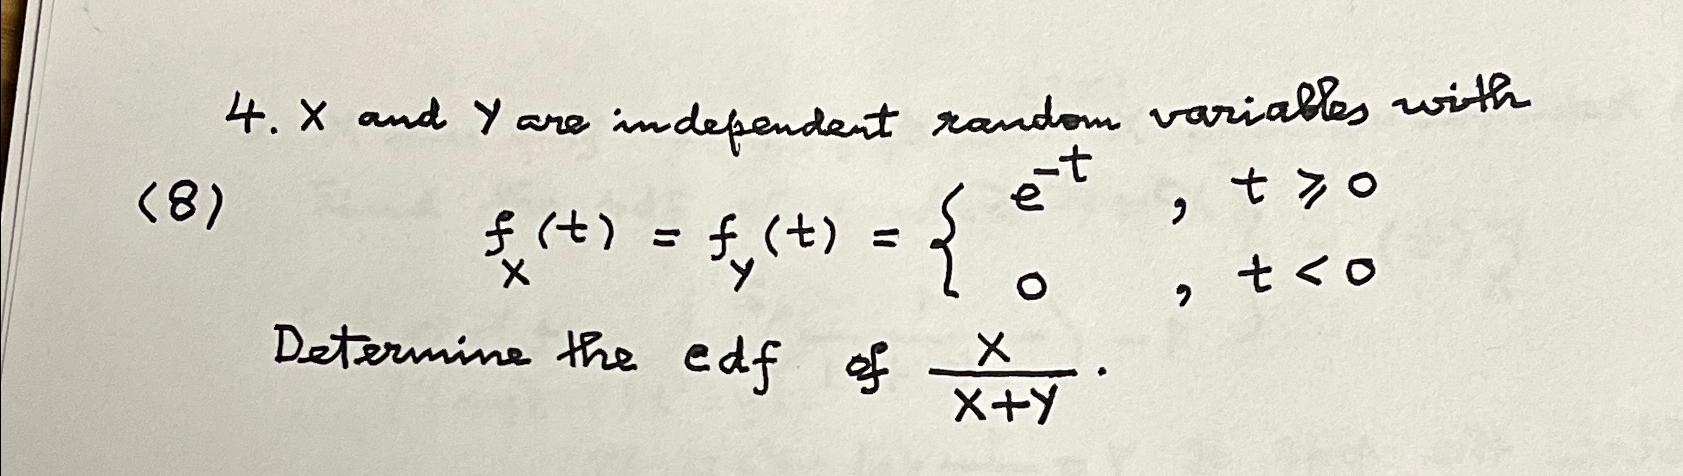 4. X and Y are independent random variables with
(8) f_X(t) = f_Y(t) = { e^{-t} , t ⩾ 0
0 , t < 0
Determine the edf of X/(X+Y).